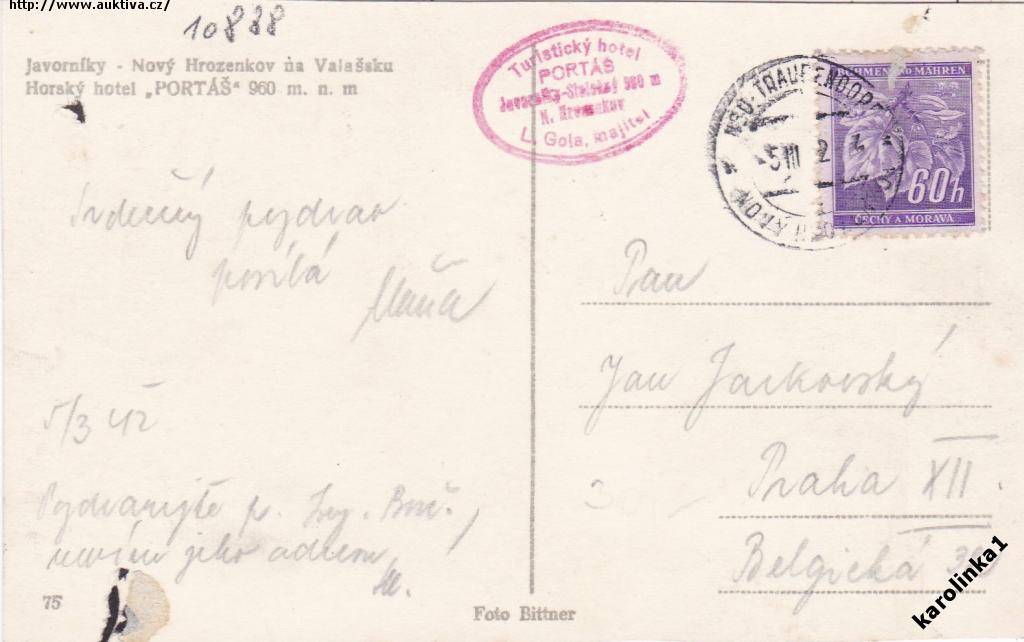 http://www.auktiva.cz/
10888
Javorníky - Nový Hrozenkov na Valašsku
Horský hotel „PORTÁŠ" 960 m. n. m
Turistický hotel
PORTÁŠ
Javorníky-Stolečný 960 m
N. Hrozenkov
L. Gola, majitel
BÖHMEN UND MÄHREN
60h
ČECHY A MORAVA
5 III
Srdečný pozdrav
posílá
Máňa
5/3 42
Pozdravujte p. Ing.
nevím jeho adresu
M.
Pan
Jan Jackovský
Praha XII.
Belgická
75
Foto Bittner
karolinka1